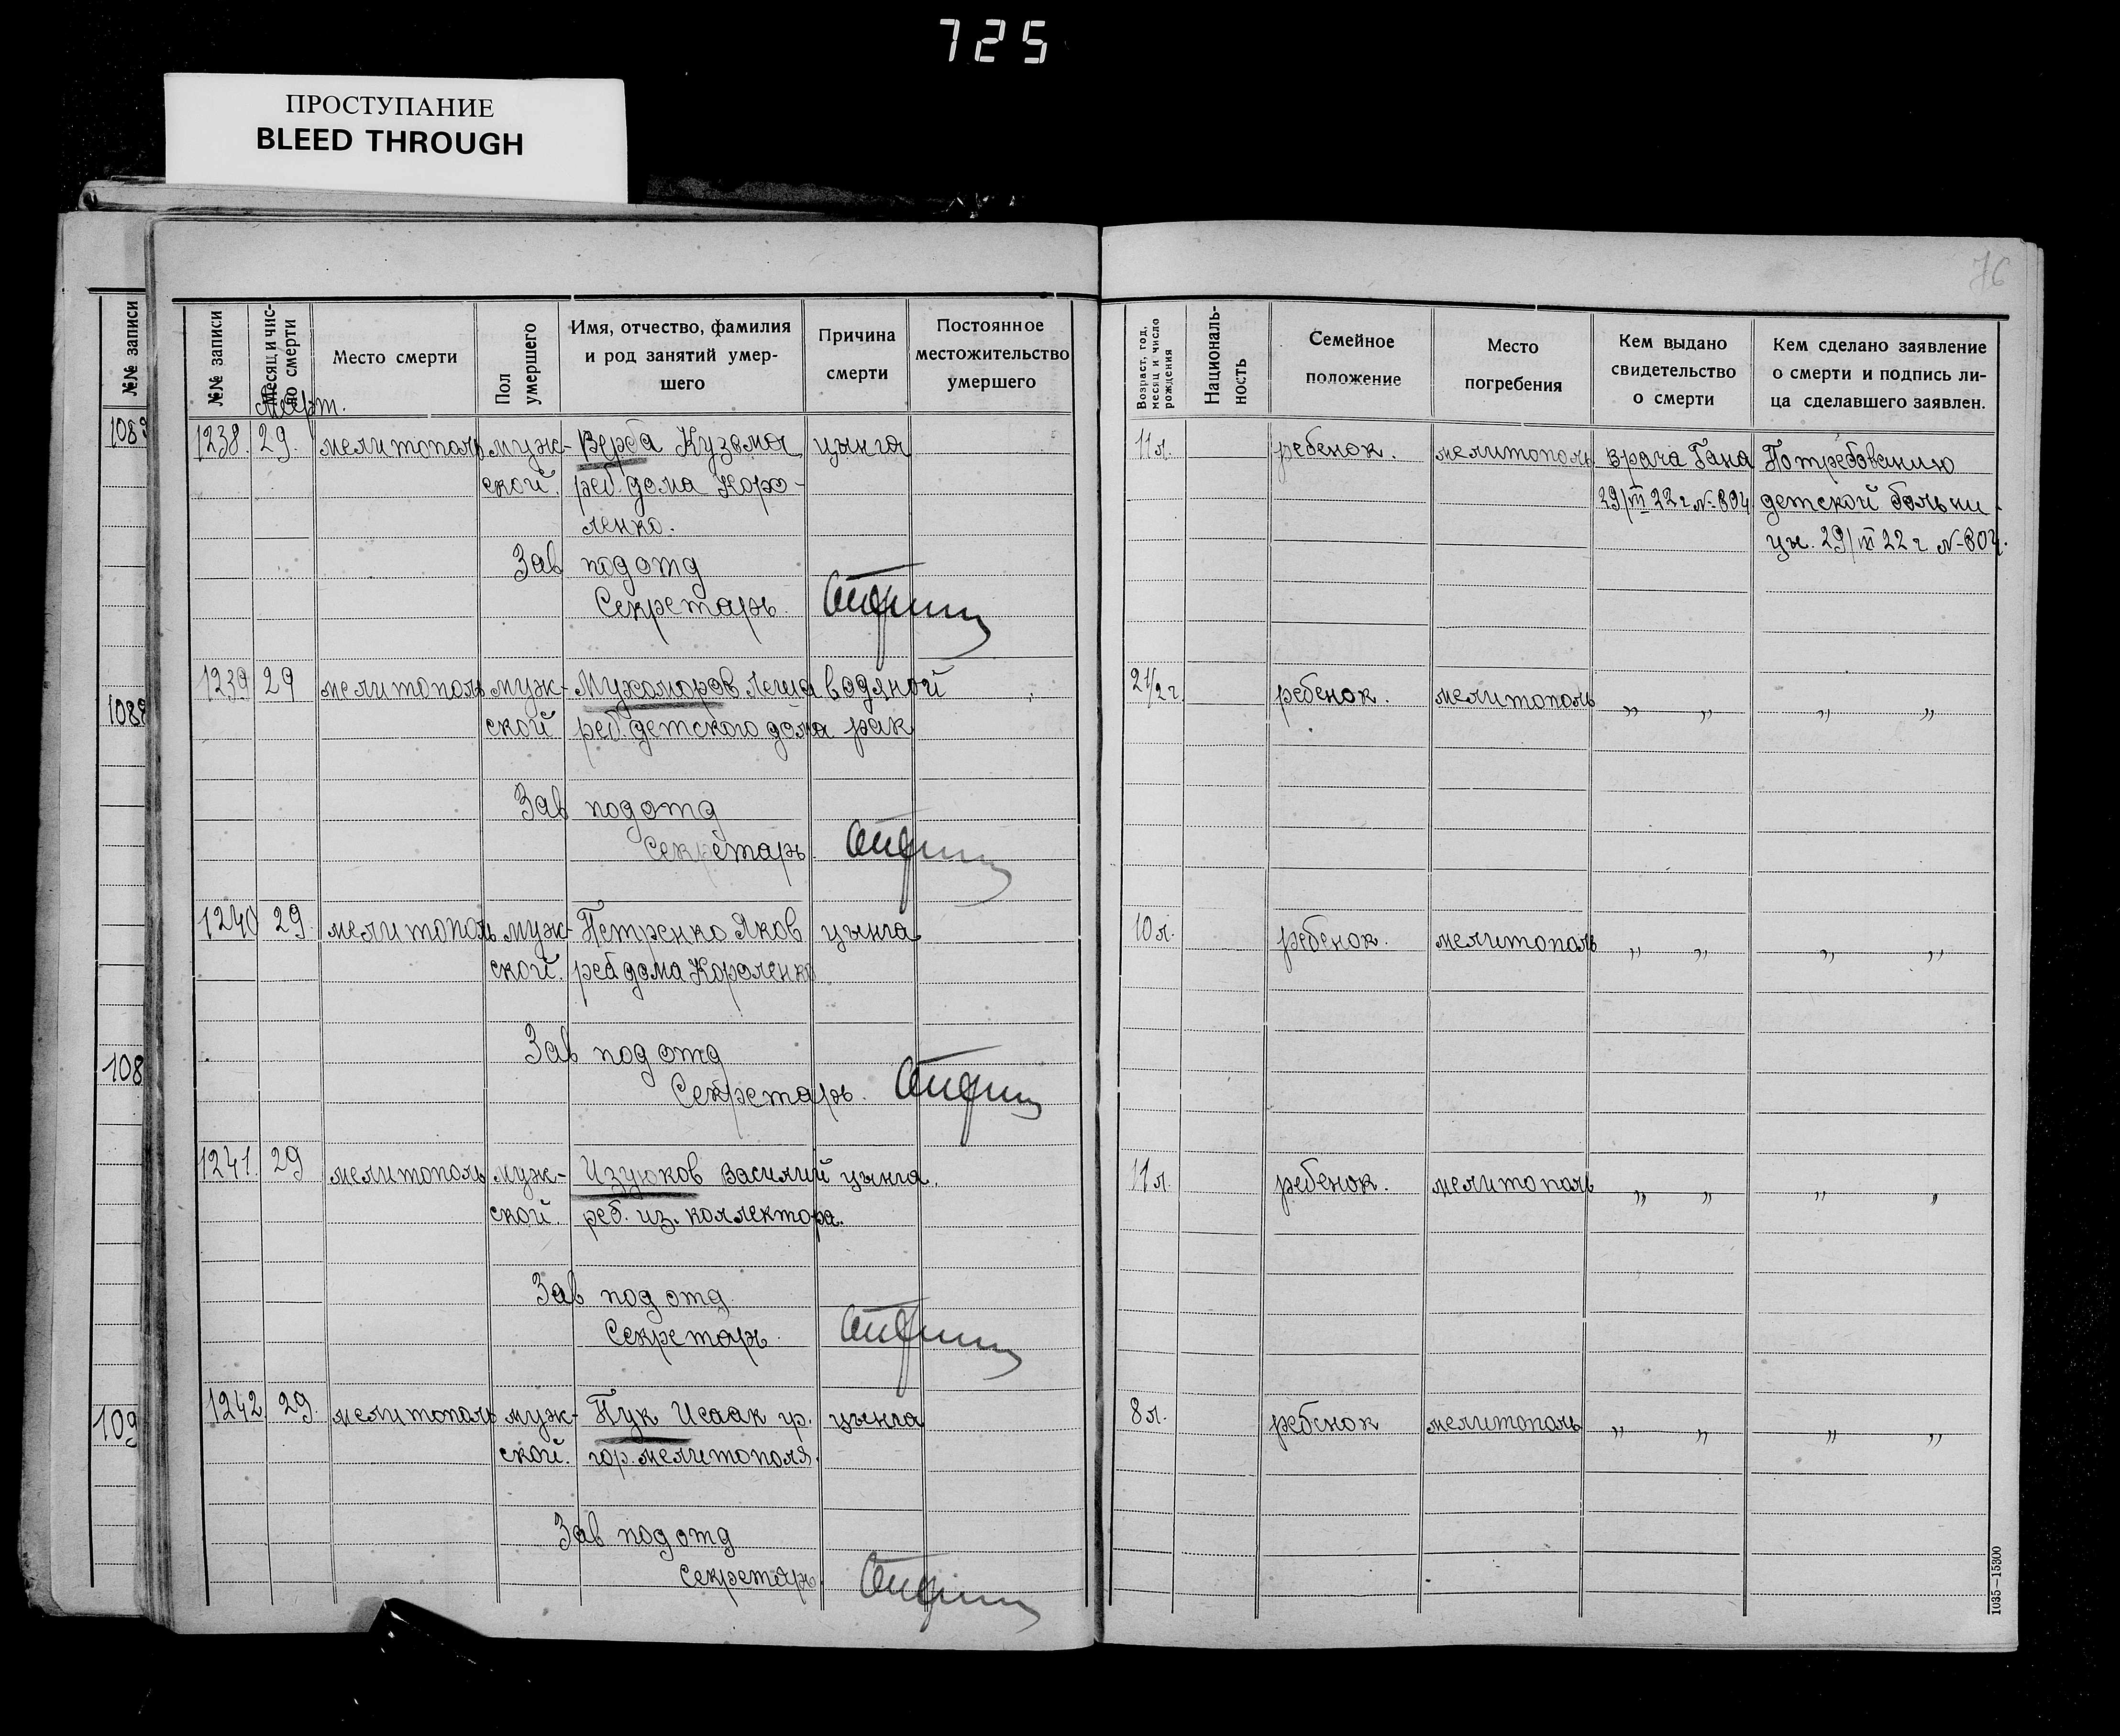 725
ПРОСТУПАНИЕ
BLEED THROUGH
76
№№ записи
№№ записи
Месяц и число смерти
Место смерти
Пол умершего
Имя, отчество, фамилия
и род занятий умер-
шего
Причина
смерти
Постоянное
местожительство
умершего
Возраст, год,
месяц и число
рождения
Националь-
ность
Семейное
положение
Место
погребения
Кем выдано
свидетельство
о смерти
Кем сделано заявление
о смерти и подпись ли-
ца сделавшего заявлен.
Март.
1238. 29. мелитополь муж- Верба Кузьма цынга 11 л. ребенок. мелитополь врача Гана По требованию
ской. реб. дома Коро- 29/III 22 г № 804 детской больни-
ленко. цы. 29/III 22 г № 804.
Зав подотд
Секретарь.
1239 29 мелитополь муж- Мухоморов Леша водяной 2 1/2 г ребенок. мелитополь „ „ „ „
ской реб. детского дома рак
Зав подотд
Секретарь.
1240 29. мелитополь муж- Петренко Яков цынга 10 л. ребенок. мелитополь „ „ „ „
ской. реб дома Короленко
Зав подотд
Секретарь.
1241. 29 мелитополь муж- Изуюков Василий цынга. 11 л. ребенок. мелитополь „ „ „ „
ской. реб. из. коллектора.
Зав подотд.
Секретарь.
1242 29. мелитополь муж- Пук Исаак гр. цынга 8 л. ребенок мелитополь „ „ „ „
ской. гор. мелитополя.
Зав подотд
Секретарь.
108
109
1035—15300